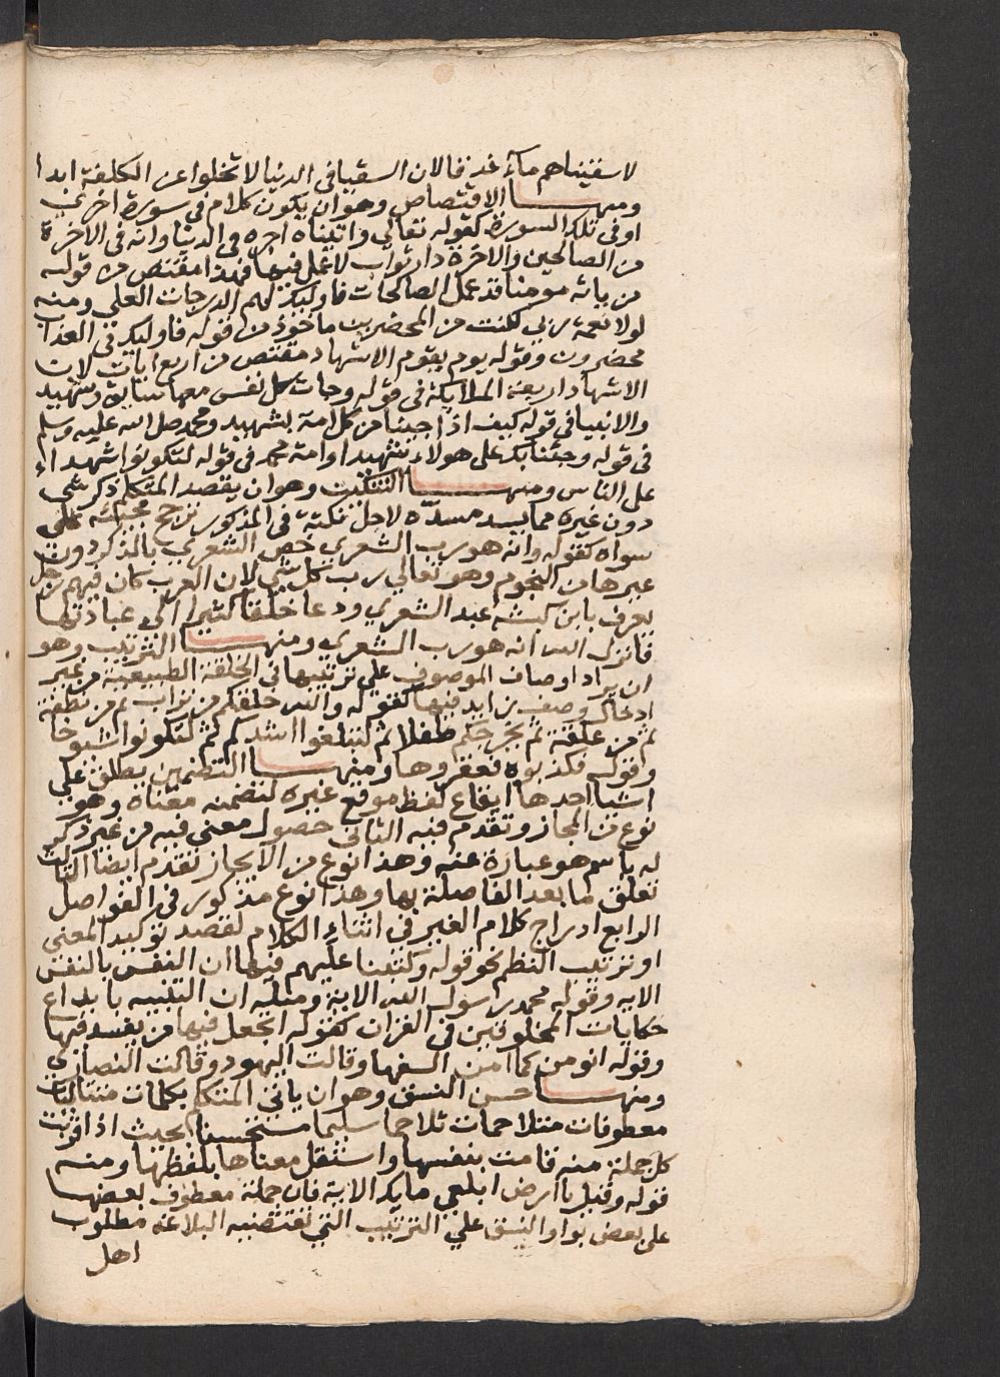 لاسقيناهم ماء غدقا لان السقيا في الدنيا لا تخلوا عن الكلفة ابدا
ومنها الاقتصاص وهو ان يكون كلام في سورة اخري
او في تلك السورة كقوله تعالي واتيناه اجره في الدنيا وانه في الاخرة
من الصالحين والاخرة دار ثواب لا عمل فيها فهذا مقتص من قوله
من ياته مومنا قد عمل الصالحات فاوليك لهم الدرجات العلي ومنه
لولا نعمة ربي لكنت من المحضرين ماخوذ من قوله فاوليك في العذاب
محضرون وقوله يوم يقوم الاشهاد مقتص من اربع ايات لان
الاشهاد اربعة الملايكة في قوله وجات كل نفس معها سايق وشهيد
والانبيا في قوله كيف اذا جينا من كل امة بشهيد ومحمد صلي الله عليه وسلم
في قوله وجئنا بك علي هولاء شهيدا وامة محمد في قوله لتكونوا شهداء
علي الناس ومنها التنكيت وهو ان يقصد المتكلم ذكر شي
دون غيره مما يسد مسده لاجل نكتة في المذكور ترجح مجيئه علي
سواه كقوله وانه هو رب الشعري خص الشعري بالذكر دون
غيرها من النجوم وهو تعالي رب كل شي لان العرب كان فيهم رجل
يعرف بابن كبشه عبد الشعري ودعا خلقا كثيرا الي عبادتها
فانزل الله انه هو رب الشعري ومنها الترتيب وهو
ان يراد اوصاف الموصوف علي ترتيبها في الخلقة الطبيعية من غير
ادخال وصف زايد فيها كقوله والله خلقكم من تراب ثم من نطفة
ثم من علقة ثم يخرجكم طفلا ثم لتبلغوا اشدكم ثم لتكونوا شيوخا
وقوله فكذبوه فعقروها ومنها التضمين يطلق علي
اشيا احدها ايقاع لفظ موقع غيره لتضمنه معناه وهو
نوع من المجاز وتقدم فيه الثاني حصول معني فيه من غير ذكر
له باسم هو عبارة عنه وهذا نوع من الايجاز تقدم ايضا الثالث
تعلق ما بعد الفاصلة بها وهذا نوع مذكور في الفواصل
الرابع ادراج كلام الغير في اثناء الكلام لقصد توكيد المعني
او ترتيب النظم نحو قوله وكتبنا عليهم فيها ان النفس بالنفس
الايه وقوله محمد رسول الله الاية ومثله ان التنبيه بايداع
حكايات المخلوقين في القران كقوله اتجعل فيها من يفسد فيها
وقوله انومن كما امن السفها وقالت اليهود وقالت النصاري
ومنها حسن النسق وهو ان ياتي المتكلم بكلمات متتاليات
معطوفات متلاحمات تلاحما سليما مستحسنا بحيث اذا افردت
كل جملة منه قامت بنفسها واستقل معناها بلفظها ومنه
قوله وقيل يا ارض ابلعي مايك الاية فان جملة معطوف بعضها
علي بعض بواو النسق علي الترتيب التي تقتضيه البلاغة مطلوب
اهل